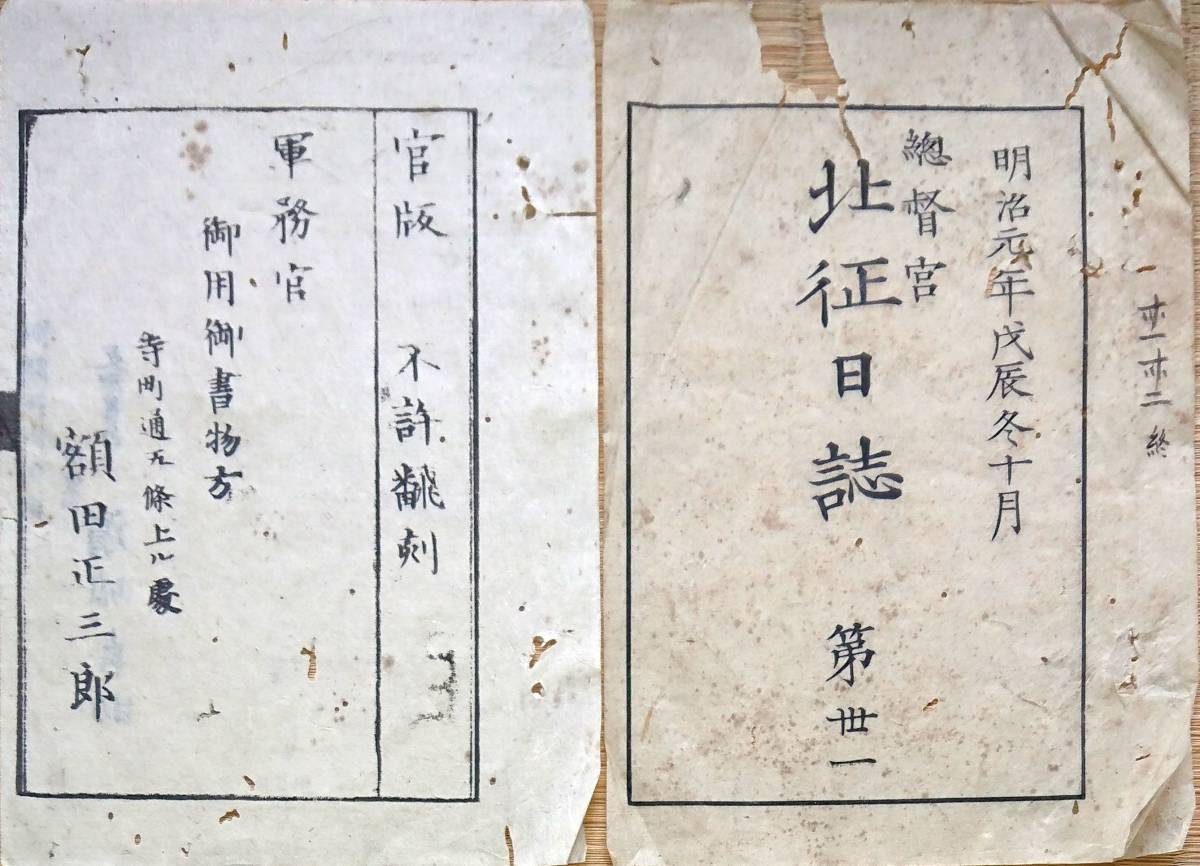 卅一卅二 終
明治元年戊辰冬十月
總督宮
北征日誌 第丗一
官版 不許飜刻
軍務官
御用御書物方
寺町通五條上ル處
額田正三郎